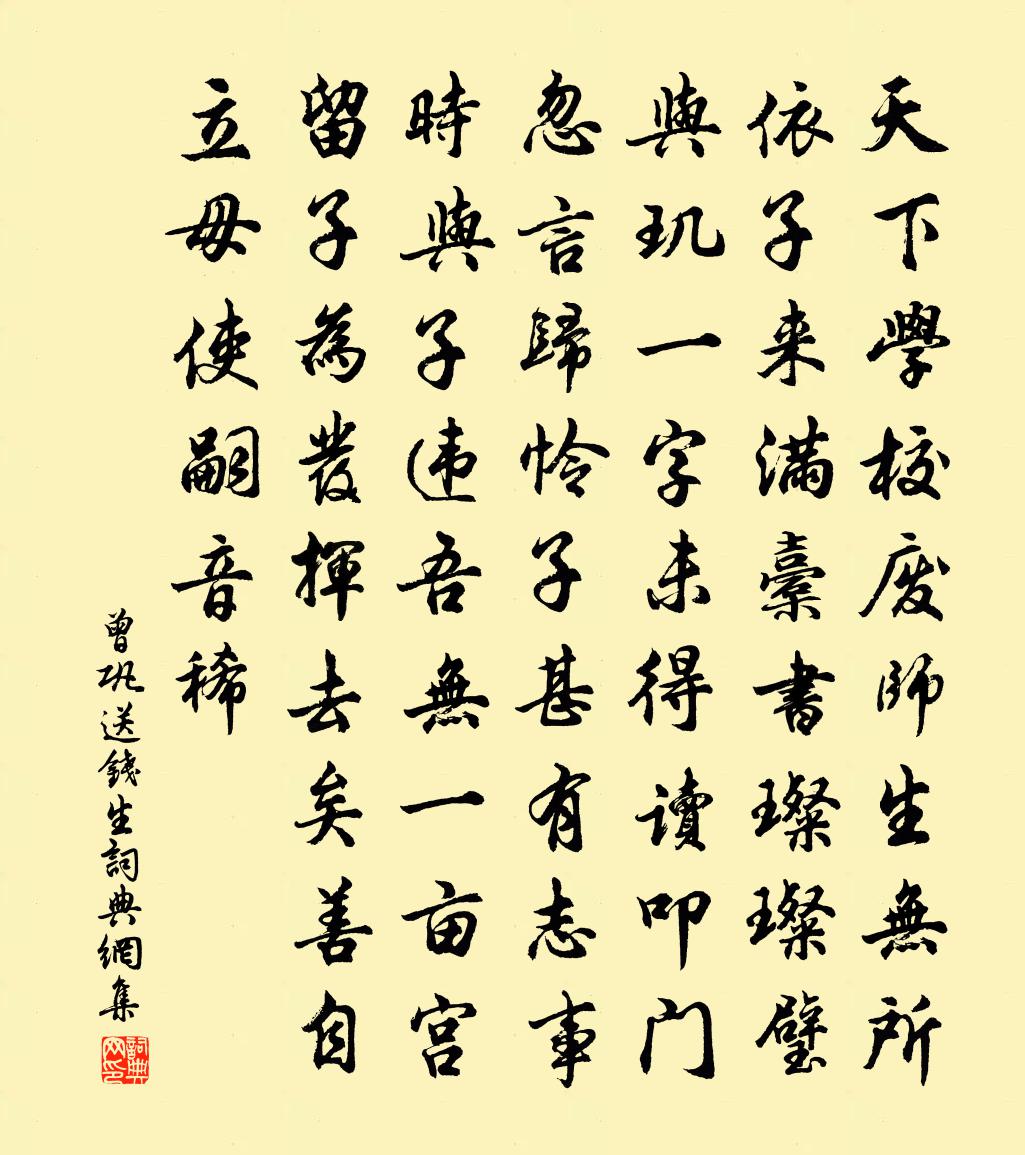 天下學校废師生無所
依子来满藁書璨璨璧
與玑一字未得讀叩门
忽言歸怜子甚有志事
時與子违吾無一亩宫
留子為發揮去矣善自
立毋使嗣音稀
曾巩送錢生詞典網集
詞典网印